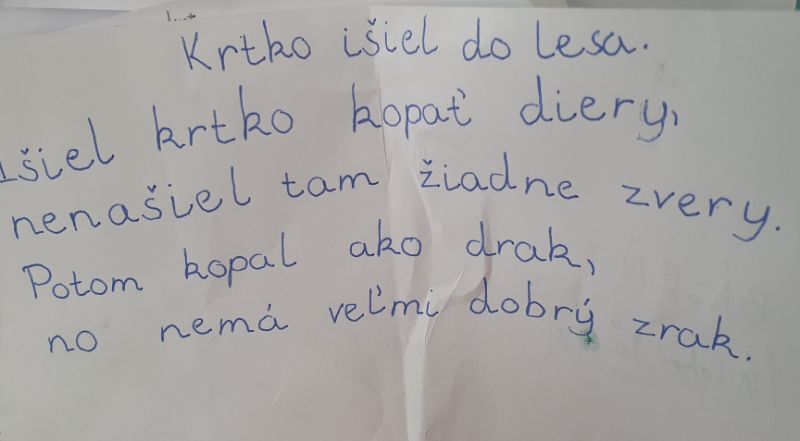 Krtko išiel do lesa.
Išiel krtko kopať diery,
nenašiel tam žiadne zvery.
Potom kopal ako drak,
no nemá veľmi dobrý zrak.